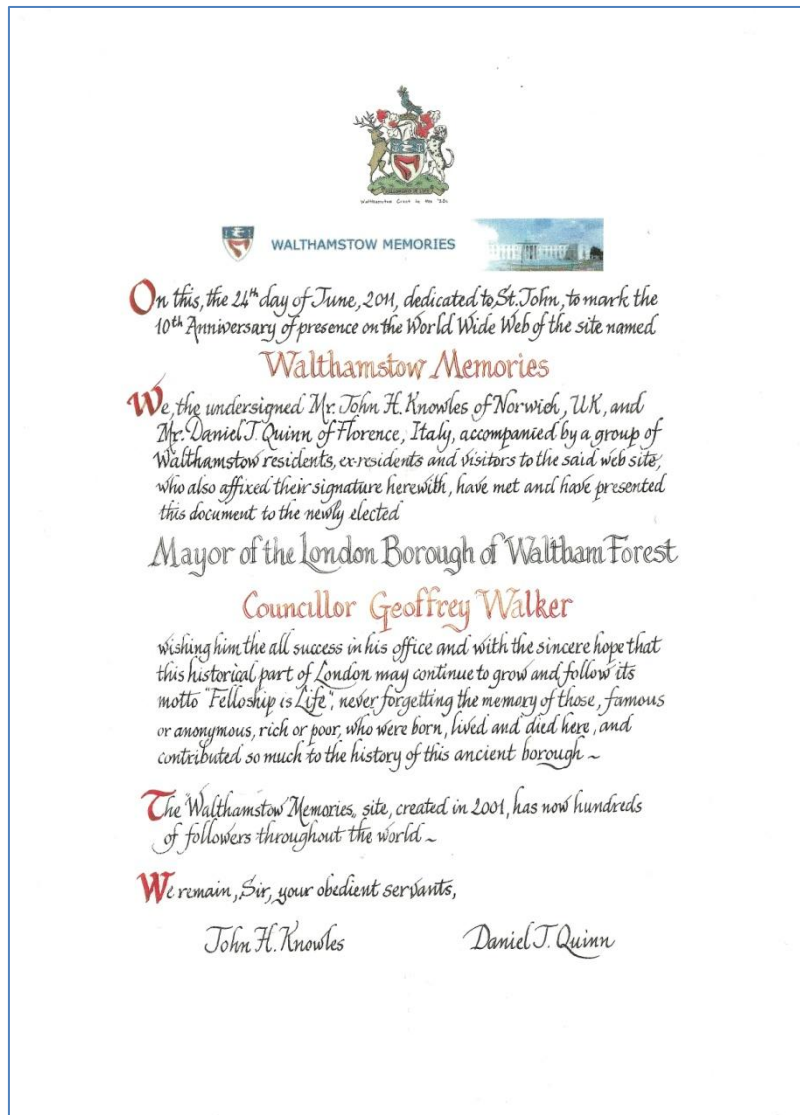 Walthamstow Crest in the '30s
WALTHAMSTOW MEMORIES
On this, the 24th day of June, 2011, dedicated to St. John, to mark the
10th Anniversary of presence on the World Wide Web of the site named
Walthamstow Memories
We, the undersigned Mr. John H. Knowles of Norwich, UK, and
Mr. Daniel T. Quinn of Florence, Italy, accompanied by a group of
Walthamstow residents, ex-residents and visitors to the said web site,
who also affixed their signature herewith, have met and have presented
this document to the newly elected
Mayor of the London Borough of Waltham Forest
Councillor Geoffrey Walker
wishing him the all success in his office and with the sincere hope that
this historical part of London may continue to grow and follow its
motto "Felloship is Life", never forgetting the memory of those, famous
or anonymous, rich or poor, who were born, lived and died here, and
contributed so much to the history of this ancient borough ~
The "Walthamstow Memories" site, created in 2001, has now hundreds
of followers throughout the world ~
We remain, Sir, your obedient servants,
John H. Knowles Daniel T. Quinn